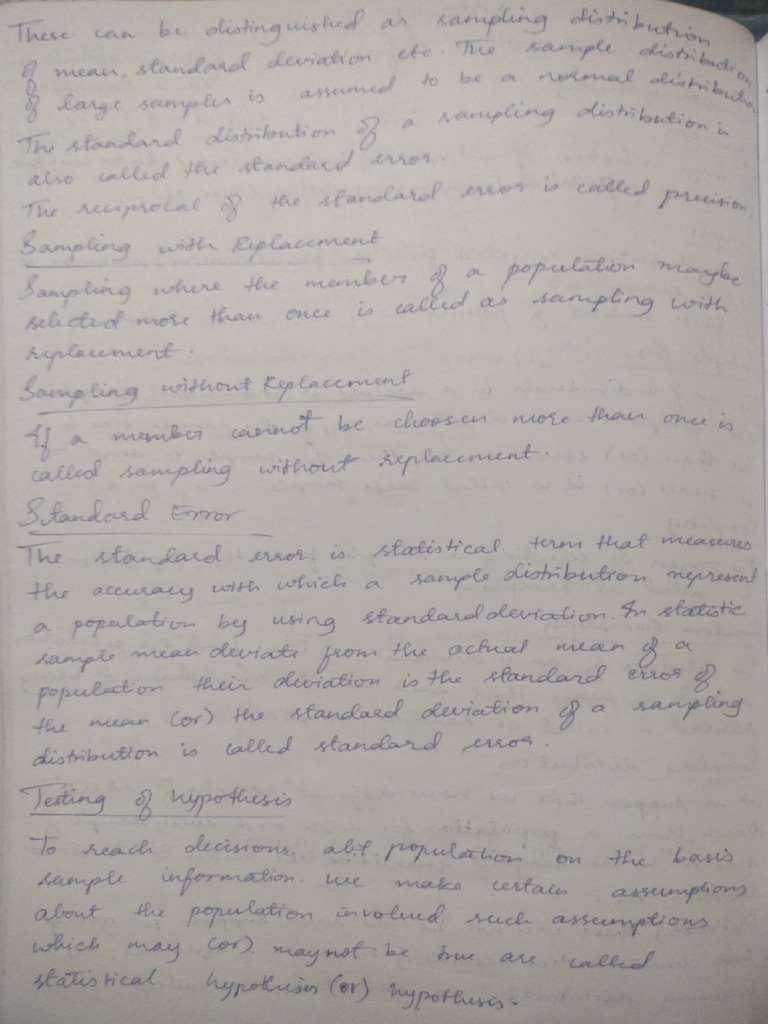 These can be distinguished as sampling distribution
of mean, standard deviation etc. The sample distribution
of large samples is assumed to be a normal distribution
The standard distribution of a sampling distribution is
also called the standard error.
The reciprocal of the standard error is called precision.
Sampling with Replacement
Sampling where the member of a population maybe
selected more than once is called as sampling with
replacement.
Sampling without Replacement
If a member cannot be choosen more than once is
called sampling without replacement.
Standard Error
The standard error is statistical term that measures
the accuracy with which a sample distribution represent
a population by using standard deviation. In statistic
sample mean deviate from the actual mean of a
population their deviation is the standard error of
the mean (or) the standard deviation of a sampling
distribution is called standard error.
Testing of hypothesis
To reach decisions abt population on the basis
sample information. we make certain assumptions
about the population involved such assumptions
which may (or) maynot be true are called
statistical hypothesis (or) hypothesis.